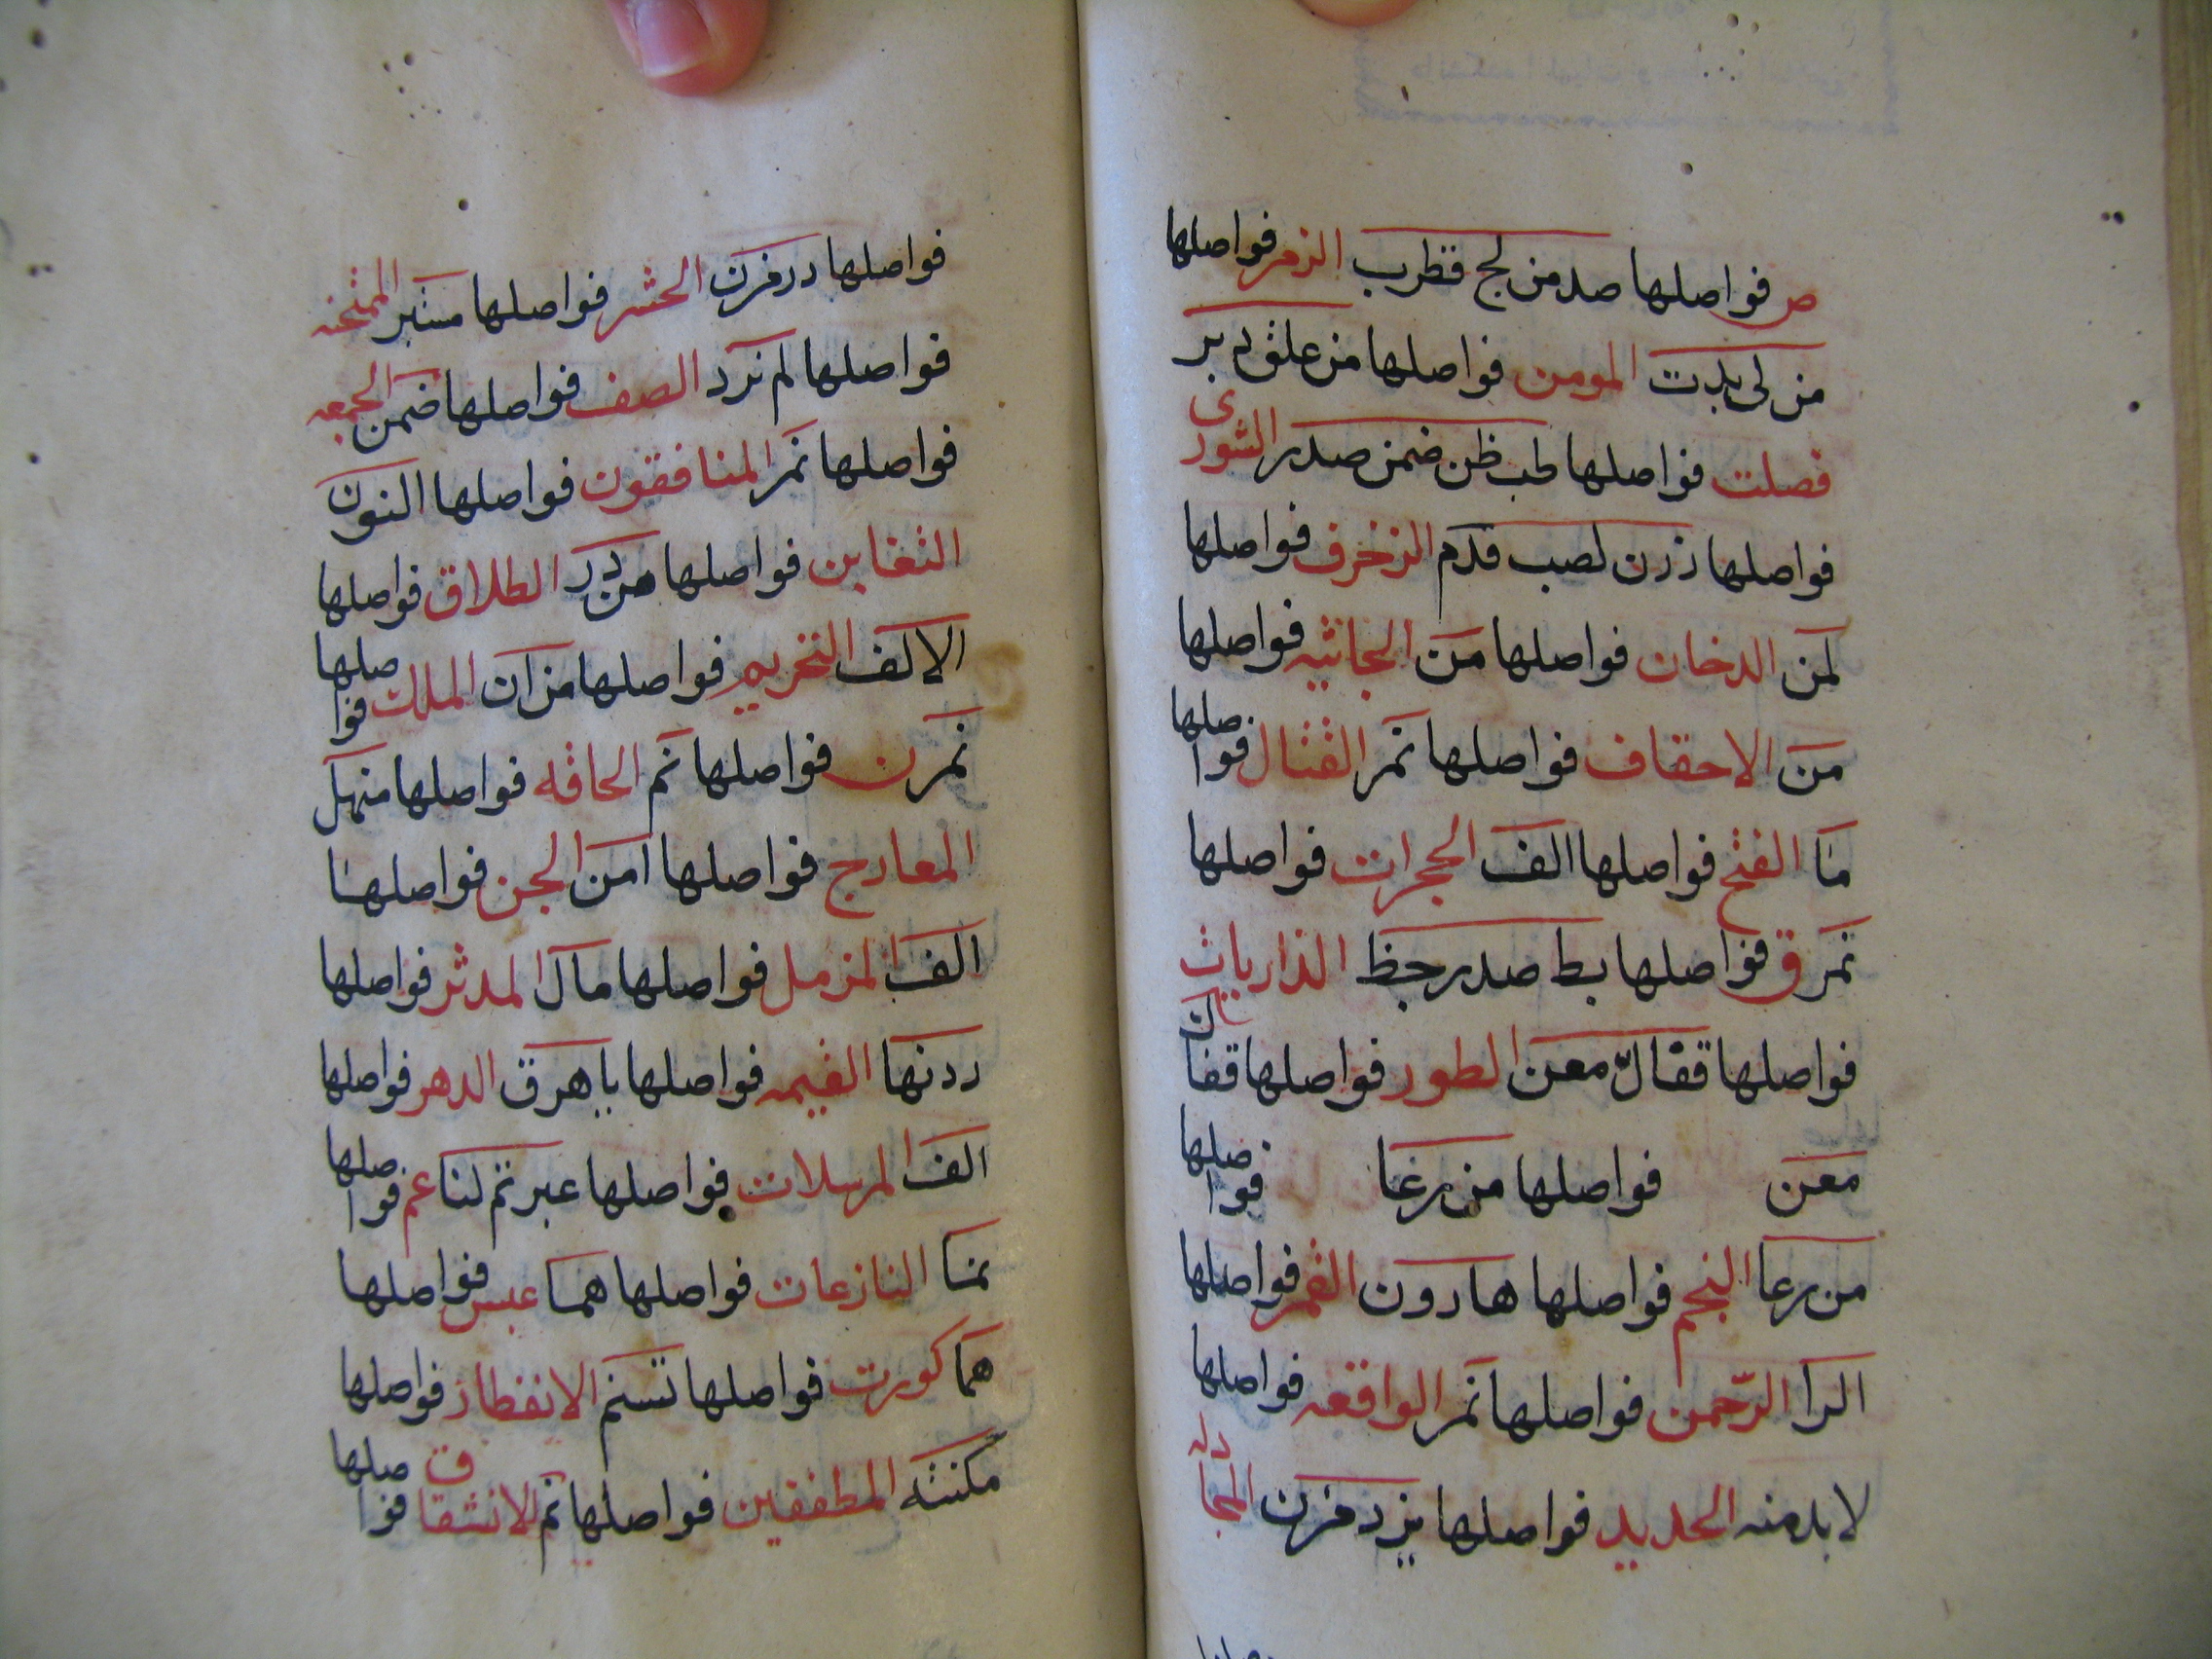 ص فواصلها صد من لج قطرب الزمر فواصلها
من لى بدت المومن فواصلها من علق دبر
فصلت فواصلها طب ظن ضمن صدر الشورى
فواصلها زرن لصب قدم الزخرف فواصلها
لمن الدخان فواصلها من الجاثيه فواصلها
من الاحقاف فواصلها نمر القتال فواصلها
ما الفتح فواصلها الف الحجرات فواصلها
نمر ق فواصلها بط صدر جظ الذاريات
فواصلها قفاك معن الطور فواصلها قفاك
معن فواصلها من رعا فواصلها
من رعا النجم فواصلها هارون القمر فواصلها
الرا الرحمن فواصلها نمر الواقعه فواصلها
لابد منه الحديد فواصلها بزد مزن المجادله
فواصلها درمزن الحشر فواصلها منبر الممتحنه
فواصلها لم نرد الصف فواصلها ضمن الجمعه
فواصلها نمر المنافقون فواصلها النون
التغابن فواصلها من در الطلاق فواصلها
الالف التحريم فواصلها من ان الملك فواصلها
نمر ن فواصلها نم الحاقه فواصلها منهل
المعارج فواصلها امن الجن فواصلها
الف المزمل فواصلها مال المدثر فواصلها
ردنها القيمه فواصلها باهرق الدهر فواصلها
الف المرسلات فواصلها عبرتم لنا عم فواصلها
نما النازعات فواصلها هما عبس فواصلها
هما كورت فواصلها تسنم الانفطار فواصلها
مكنته المطففين فواصلها نم الانشقاق فواصلها